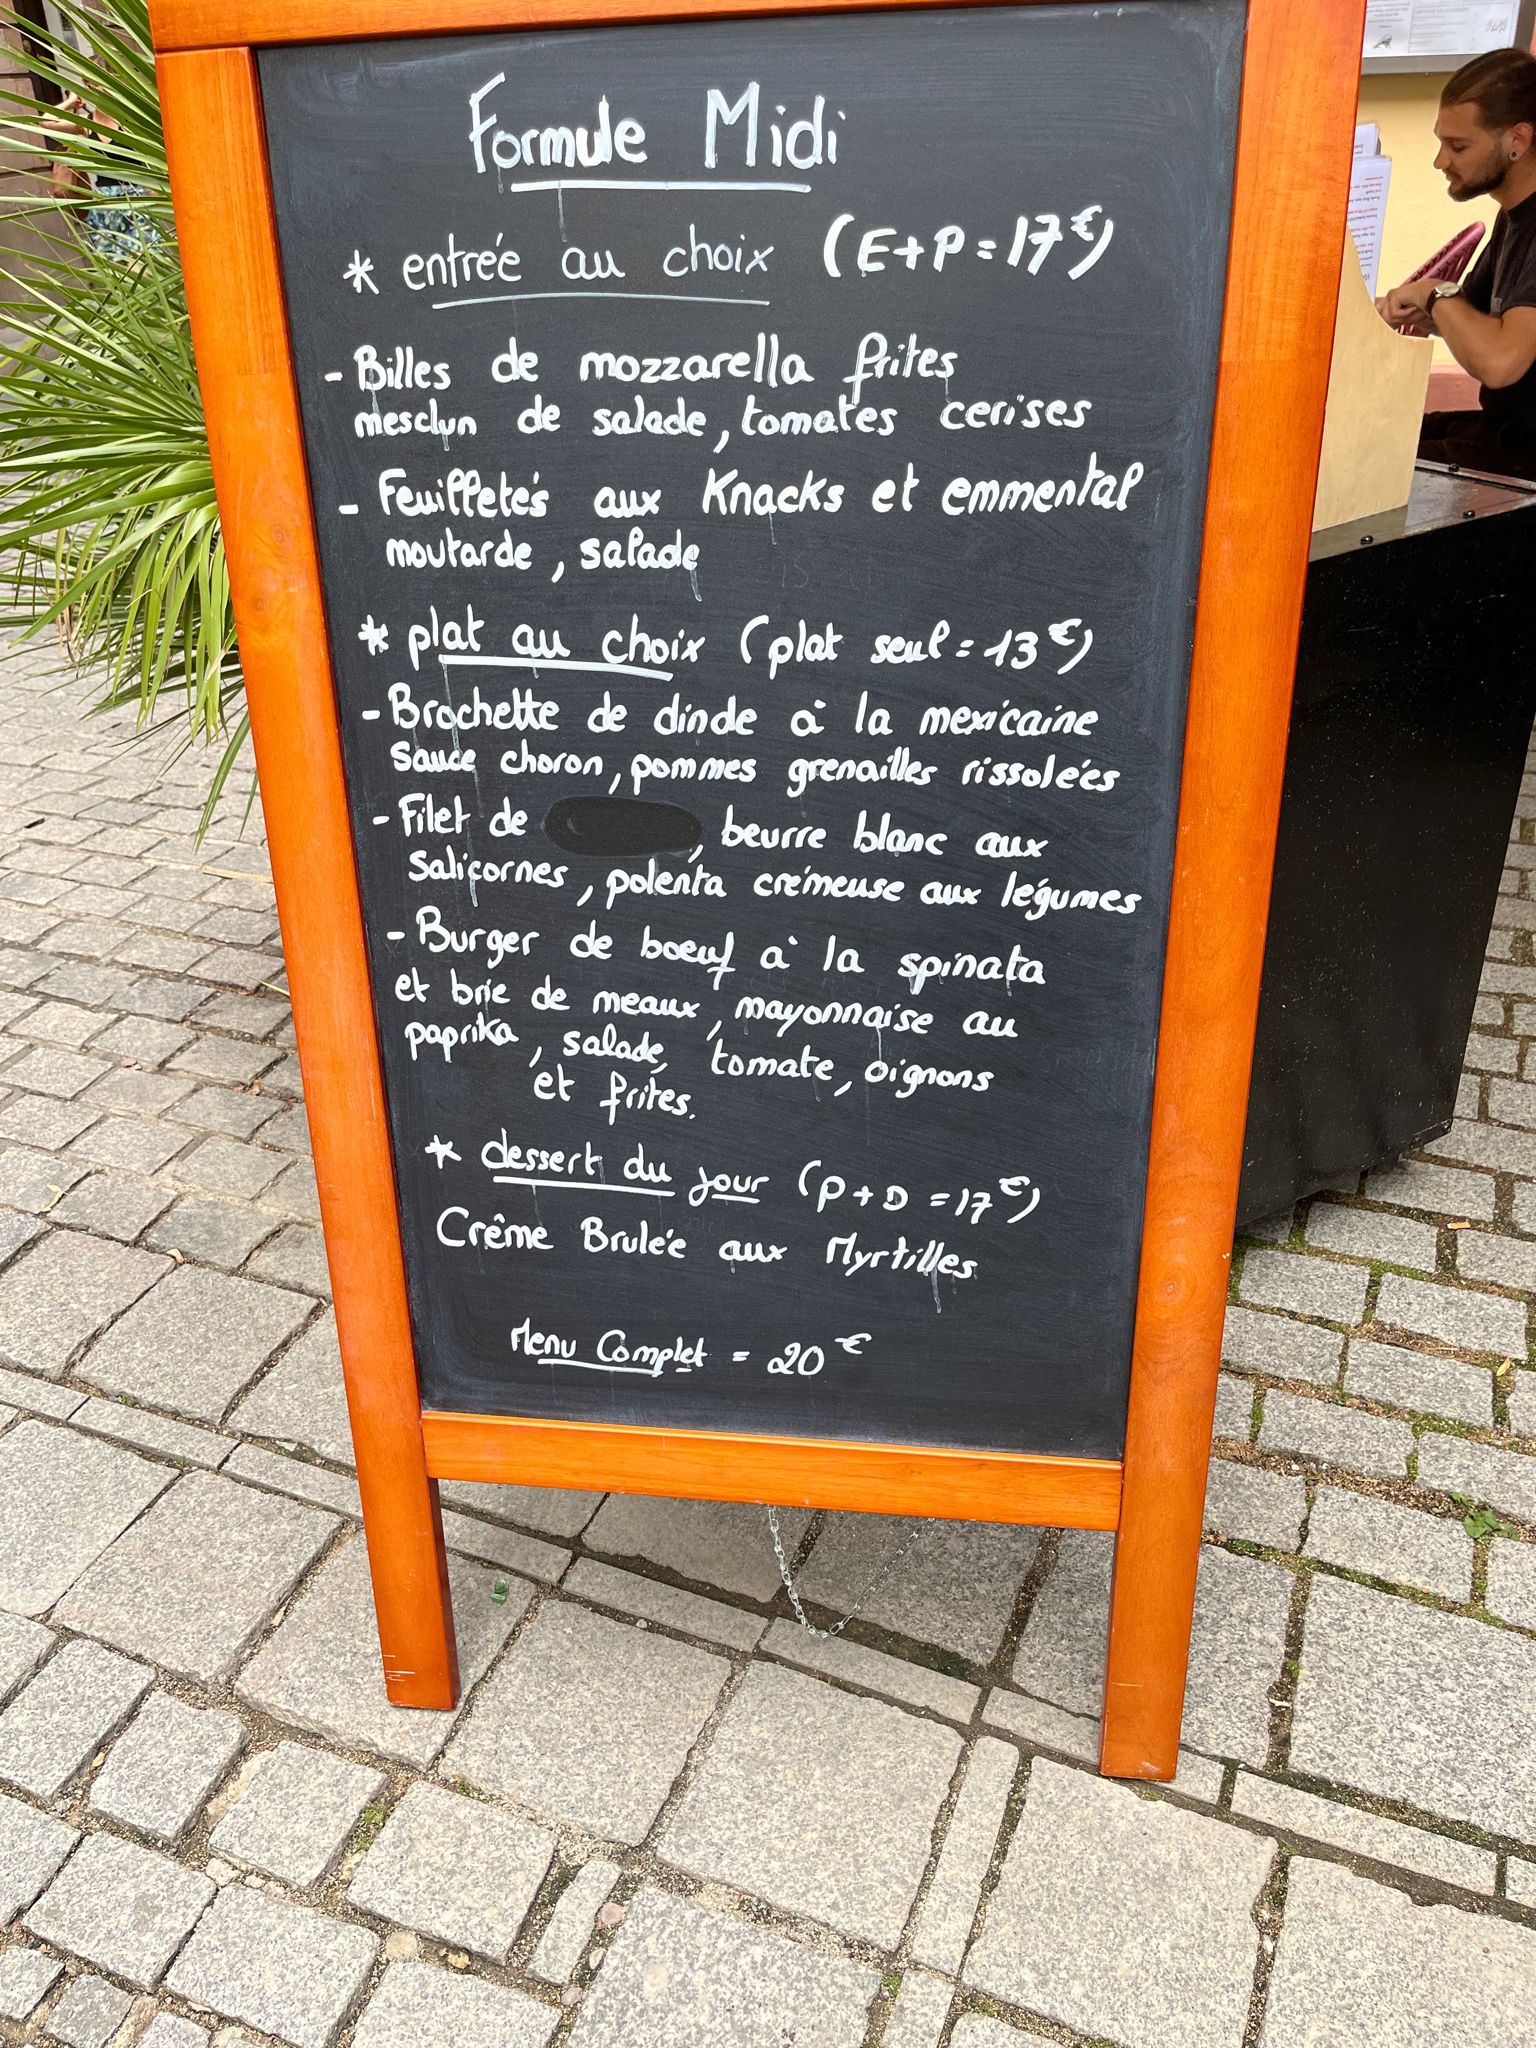 Formule Midi
* entrée au choix (E+P=17€)
- Billes de mozzarella frites
mesclun de salade, tomates cerises
- Feuilletés aux Knacks et emmental
moutarde, salade
* plat au choix (plat seul = 13€)
- Brochette de dinde à la mexicaine
sauce choron, pommes grenailles rissolées
- Filet de , beurre blanc aux
salicornes, polenta crémeuse aux légumes
- Burger de boeuf à la spinata
et brie de meaux, mayonnaise au
paprika, salade, tomate, oignons
et frites.
* dessert du jour (P+D=17€)
Crême Brulée aux Myrtilles
Menu Complet = 20€